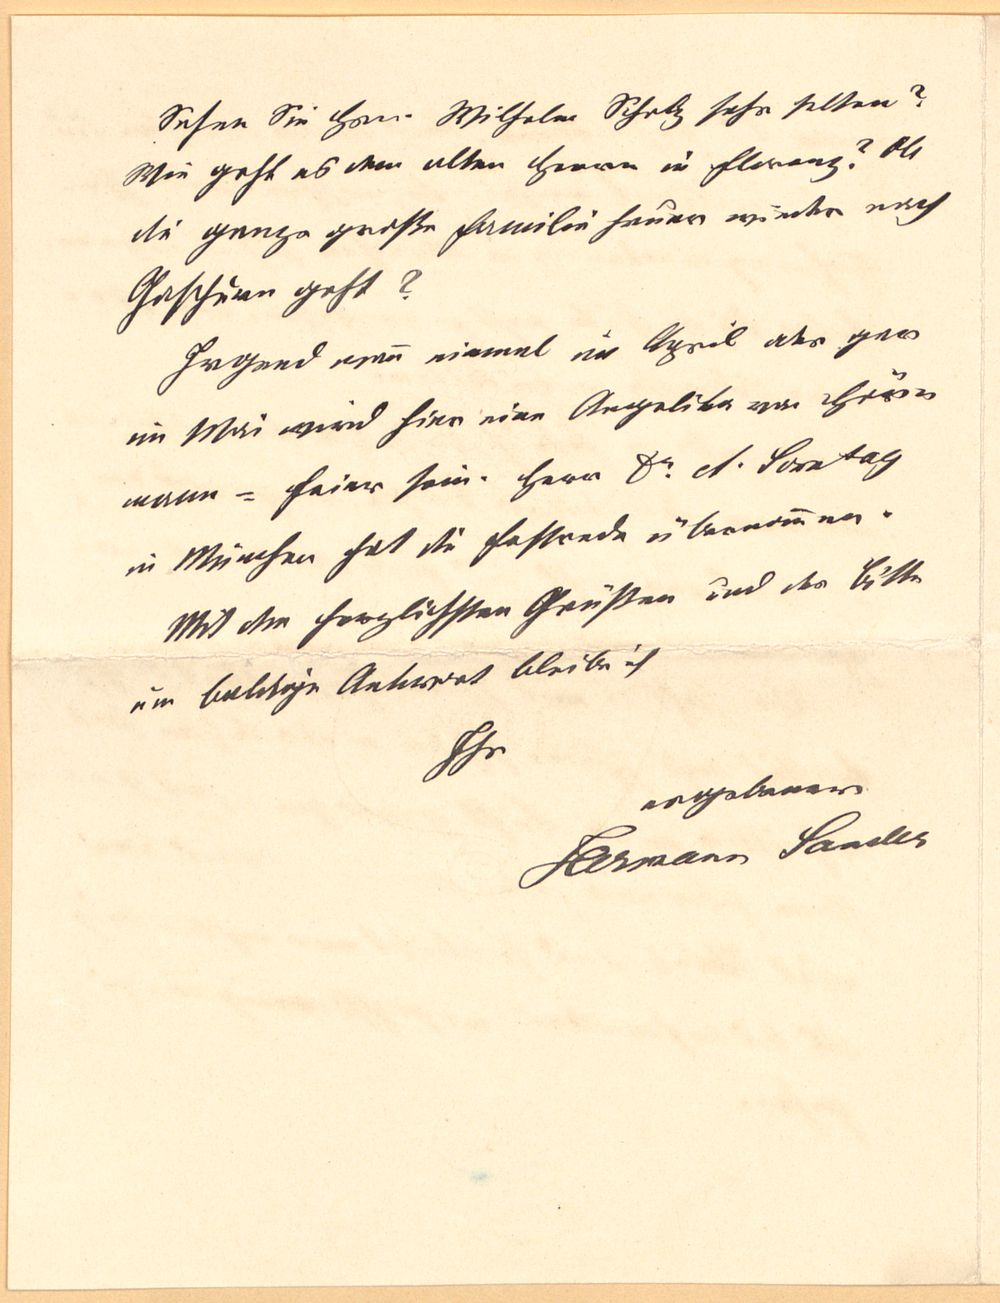 Sehen Sie Herrn Wilhelm Scholz sehr selten?
Wie geht es dem alten Herrn in Florenz? Ob
die ganze große Familie heuer wieder nach
Gaschurn geht?
Irgend wann einmal im April oder gar
im Mai wird hier eine Angelika von Hör
mann = Feier sein. Herr Dr. A. Sonntag
in München hat die Festrede übernommen.
Mit den herzlichsten Grüßen und der Bitte
um baldige Antwort bleibe ich
Ihr
ergebener
Hermann Sander